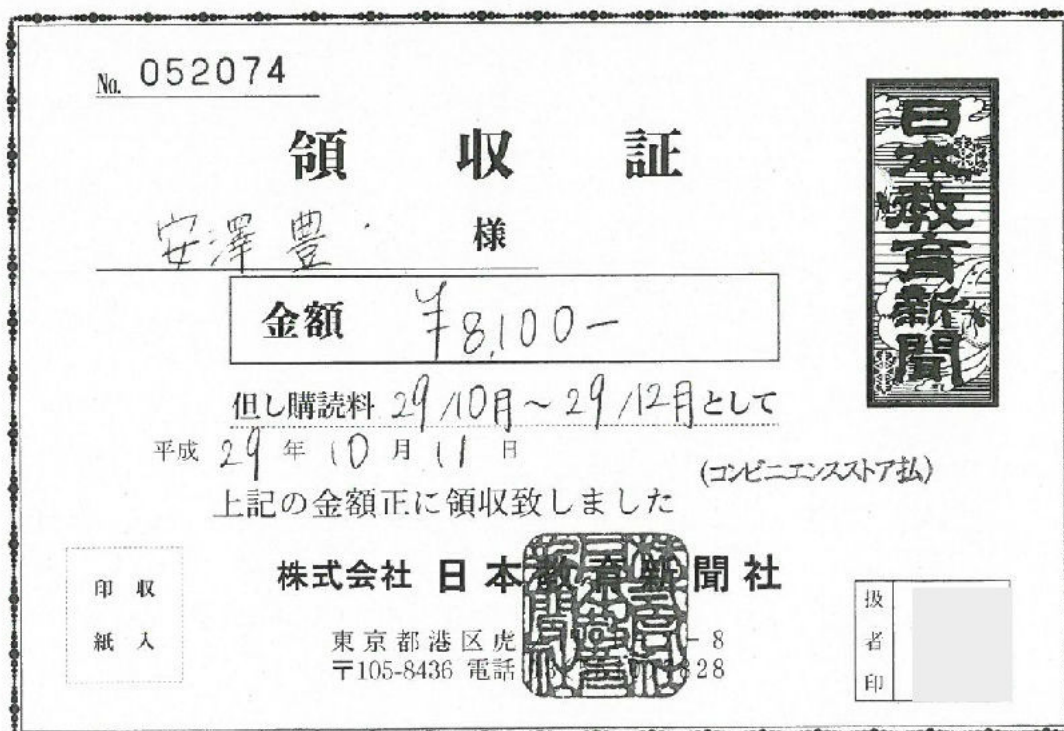 No. 052074
領収証
安澤豊 様
金額 ¥8,100-
但し購読料 29/10月～29/12月として
平成 29年 10月 11日
(コンビニエンスストア払)
上記の金額正に領収致しました
株式会社 日本教育新聞社
東京都港区虎 -8
〒105-8436 電話 828
収入
印紙
扱者印
日本教育新聞